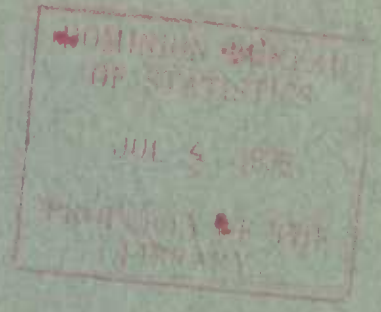 DOMINION BUREAU
OF STATISTICS
JUL 4
PROPERTY OF THE
LIBRARY